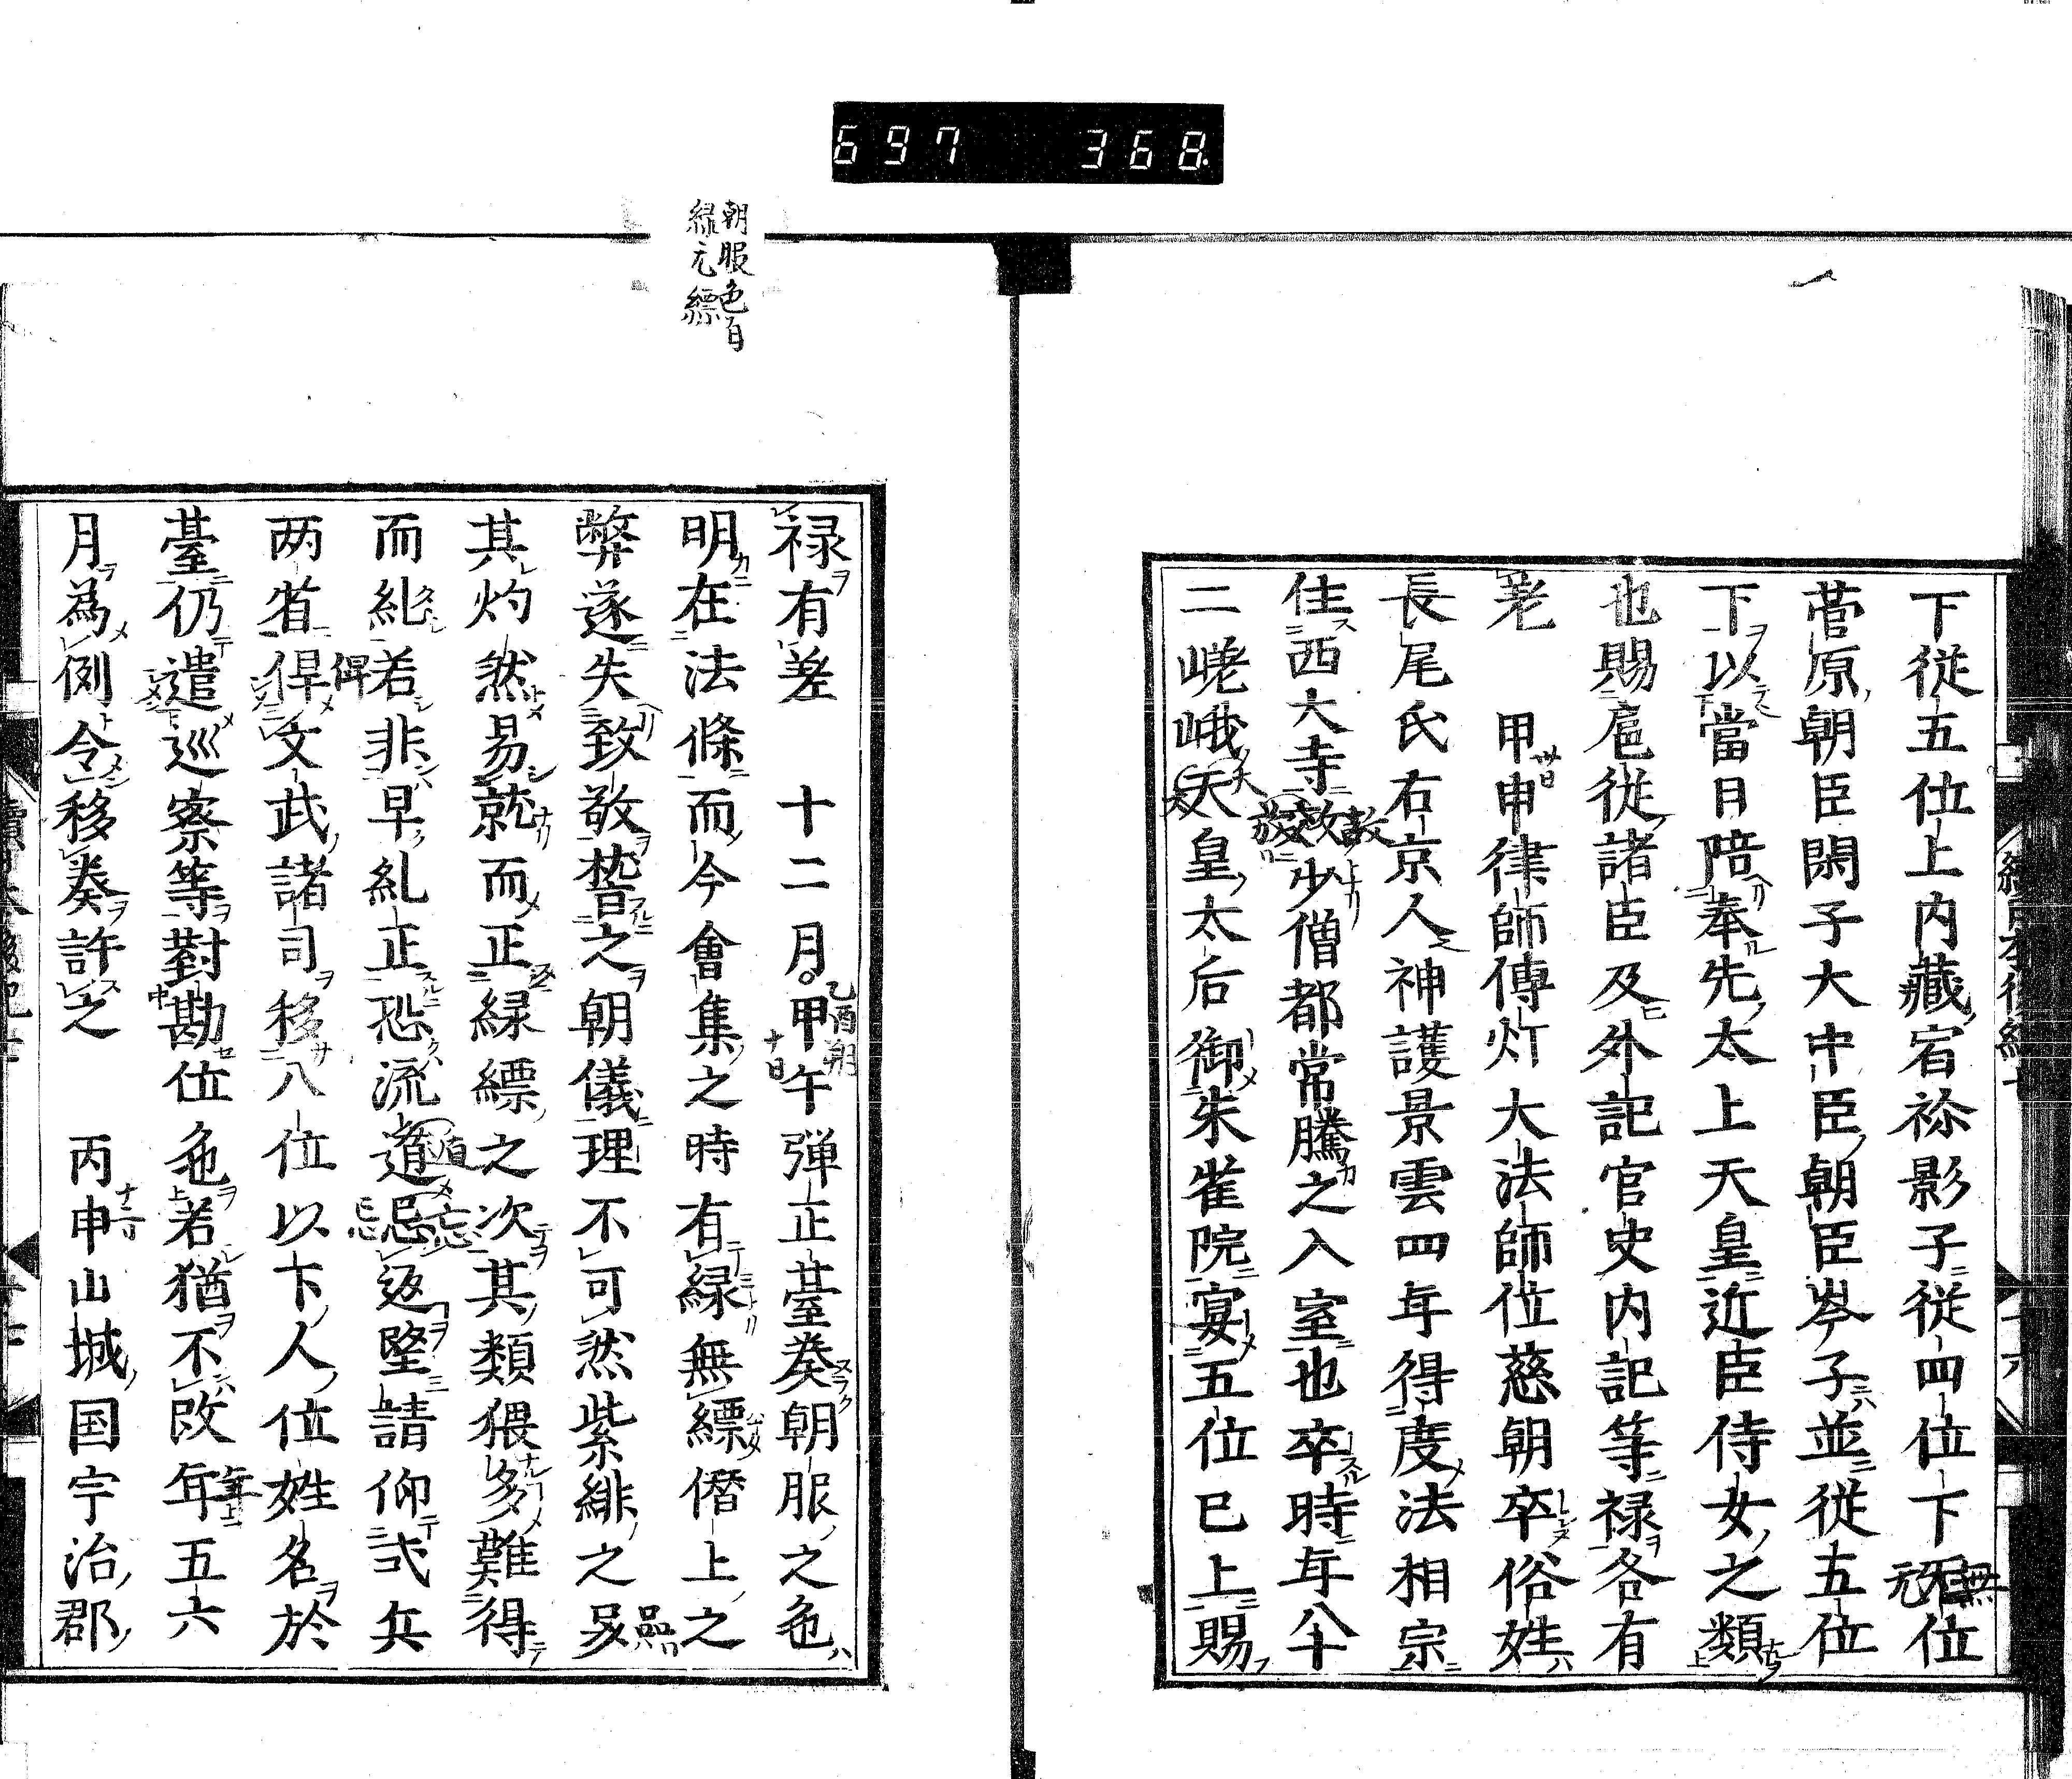 697 368.
下從五位上内藏宿祢影子從四位下无位
菅原朝臣閑子大中臣朝臣岑子並從五位
下以當日陪奉先太上天皇近臣侍女之類
也賜扈從諸臣及外記官史内記等禄各有
差 甲申律師傳灯大法師位慈朝卒俗姓
長尾氏右京人神護景雲四年得度法相宗
住西大寺故少僧都常騰之入室也卒時年八十
二嵯峨天皇太后御朱雀院宴五位已上賜
朝服色白
緑无縹
禄有差 十二月甲午弾正臺奏朝服之色
明在法條而今會集之時有緑無縹僭上之
弊遂失致敬楷之朝儀理不可然紫緋之品
其灼然易就而正緑縹之次其類猥多難得
而糺若非早糺正恐流遁忌返望請仰式兵
两省俾文武諸司移八位以下人位姓名於
臺仍遣巡察等對勘位色若猶不改年五六
月為例令移奏許之 丙申山城国宇治郡